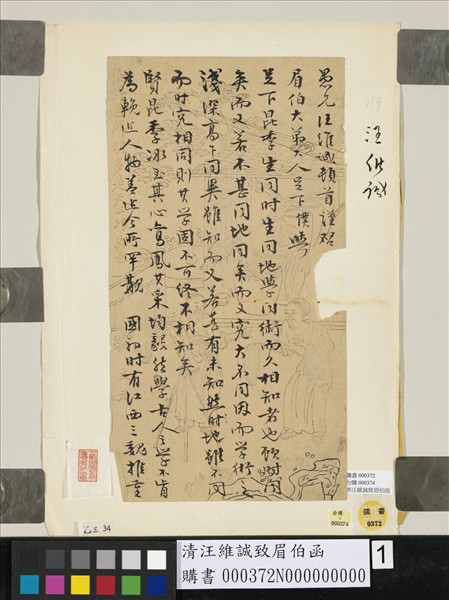 愚兄汪維誠頓首謹啓
眉伯大弟大人足下僕與
足下昆季生同時生同地學同術而久相知者也顧時同
矣而又若不甚同地同矣而又究大不同因而學術之
淺深高下同異雖知而又若有未知然時地雖不同
而時究相同則其學固不可終不相知矣
賢昆季冰玉其心鸞鳳其采均毅然學古人之學不肯
為輓近人物善今所罕觀 國初時有江西三魏推重
汪維誠
購書 000372
台購 000374
清汪維誠致眉伯函
台購
000374
購書
0372
乙三 34
清汪維誠致眉伯函
購書 000372N000000000
1